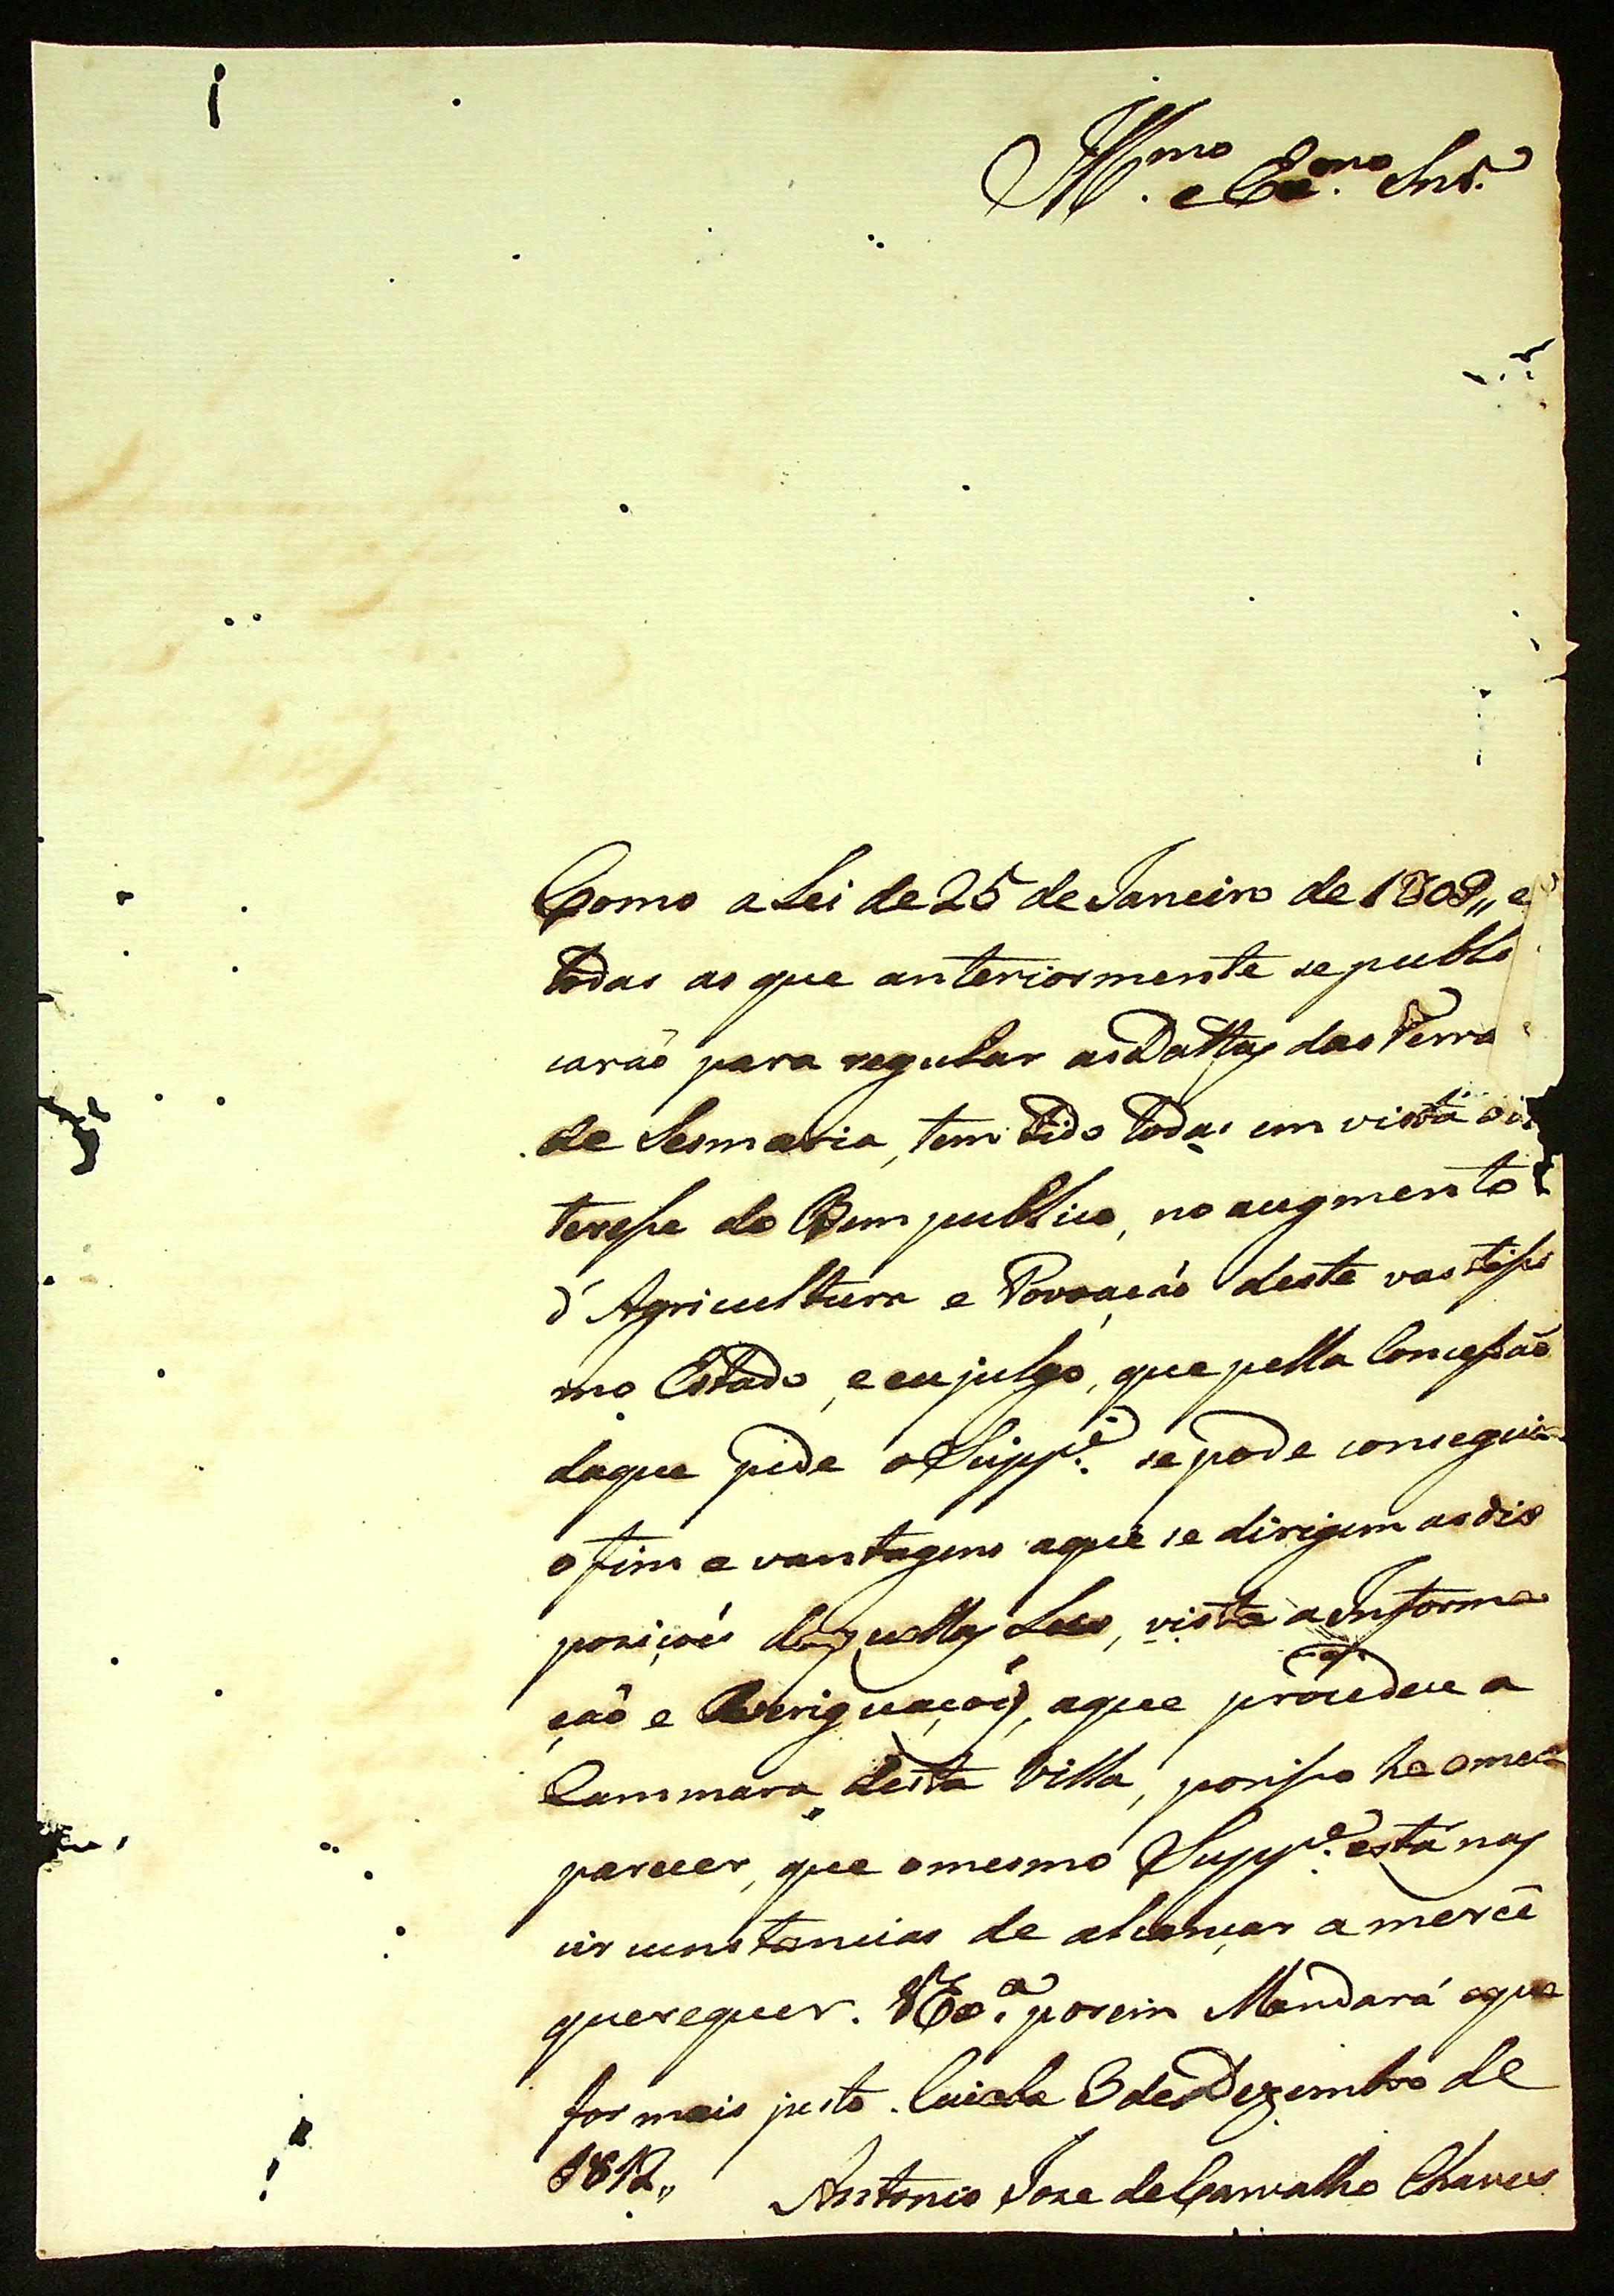 Ill.mo e Ex.mo Snr.
Como a Lei de 25 de Janeiro de 1809,, e
todas as que anteriormente se publi
carão para regular as Dattas das Terra
de Sesmaria, tem tido todas em vista o in
teresse do Bem publico, no augmento
d'Agricultura e Povoação deste vastissi
mo Estado, e eu julgo, que pella Concessão
daque pede o Supp.e se pode conseguir
o fim e vantagens aque se dirigem as dis
posiçoẽs daquellas Leis, vista a Informa
ção e Averiguaçoẽs, aque procedeu a
Cammara desta Villa, porisso he o meu
parecer, que o mesmo Supp.e está nas
circunstancias de alcançar a mercê
que requer. V Ex.a porem Mandará oque
for mais justo. Cuiaba 3 de Dezembro de
1812,,
Antonio Joze de Carvalho Chaves